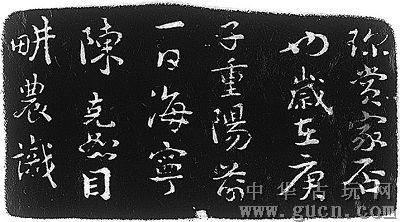 珎賞家否
歲在庚
子重陽前
一日海寧
陳克恕目
畊農識
中华古玩网
www.gucn.com